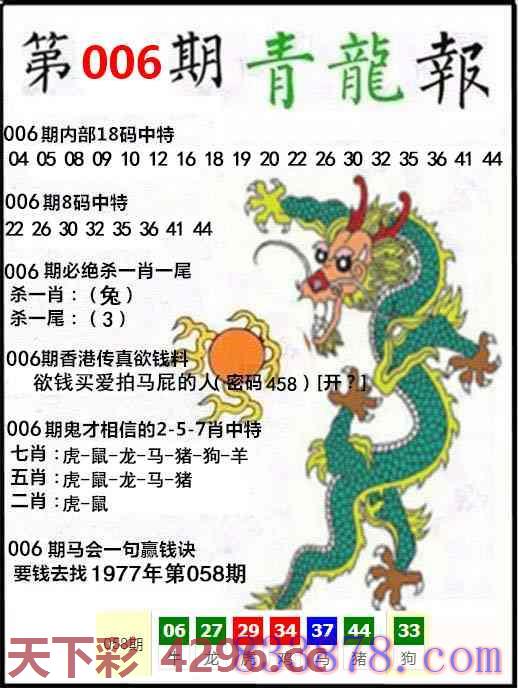 第006期青龍報
006期内部18码中特
04 05 08 09 10 12 16 18 19 20 22 26 30 32 35 36 41 44
006期8码中特
22 26 30 32 35 36 41 44
006 期必绝杀一肖一尾
杀一肖：（兔）
杀一尾：（3）
006期香港传真欲钱料
欲钱买爱拍马屁的人(密码458）[开？]
006期鬼才相信的2-5-7肖中特
七肖：虎-鼠-龙-马-猪-狗-羊
五肖：虎-鼠-龙-马-猪
二肖：虎-鼠
006期马会一句赢钱诀
要钱去找1977年第058期
058期 06 27 29 34 37 44 33
牛 龙 虎 鸡 马 猪 狗
天下彩 4296.cc